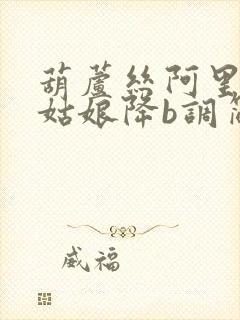 葫蘆絲阿里
姑娘降b調簡
威福